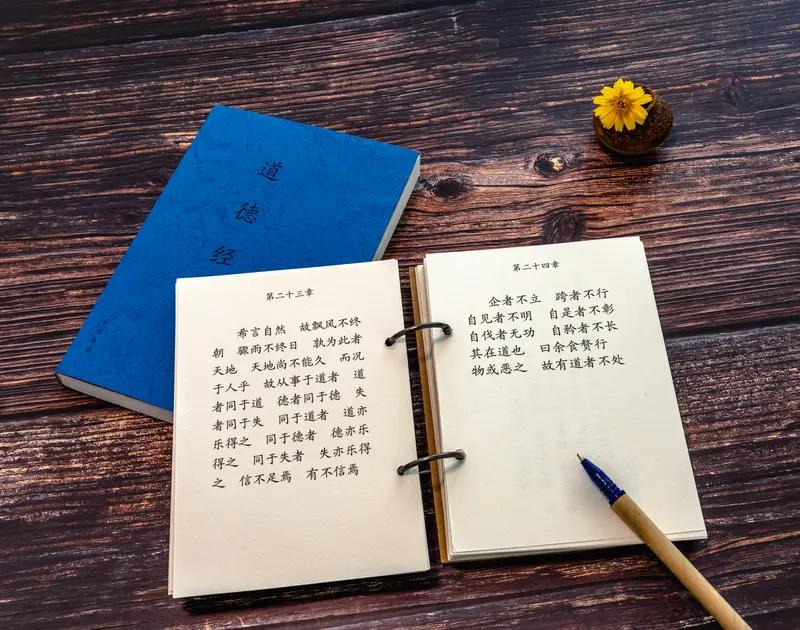 道
德
经
第二十三章
希言自然 故飘风不终
朝 骤雨不终日 孰为此者
天地 天地尚不能久 而况
于人乎 故从事于道者 道
者同于道 德者同于德 失
者同于失 同于道者 道亦
乐得之 同于德者 德亦乐
得之 同于失者 失亦乐得
之 信不足焉 有不信焉
第二十四章
企者不立 跨者不行
自见者不明 自是者不彰
自伐者无功 自矜者不长
其在道也 曰余食赘行
物或恶之 故有道者不处